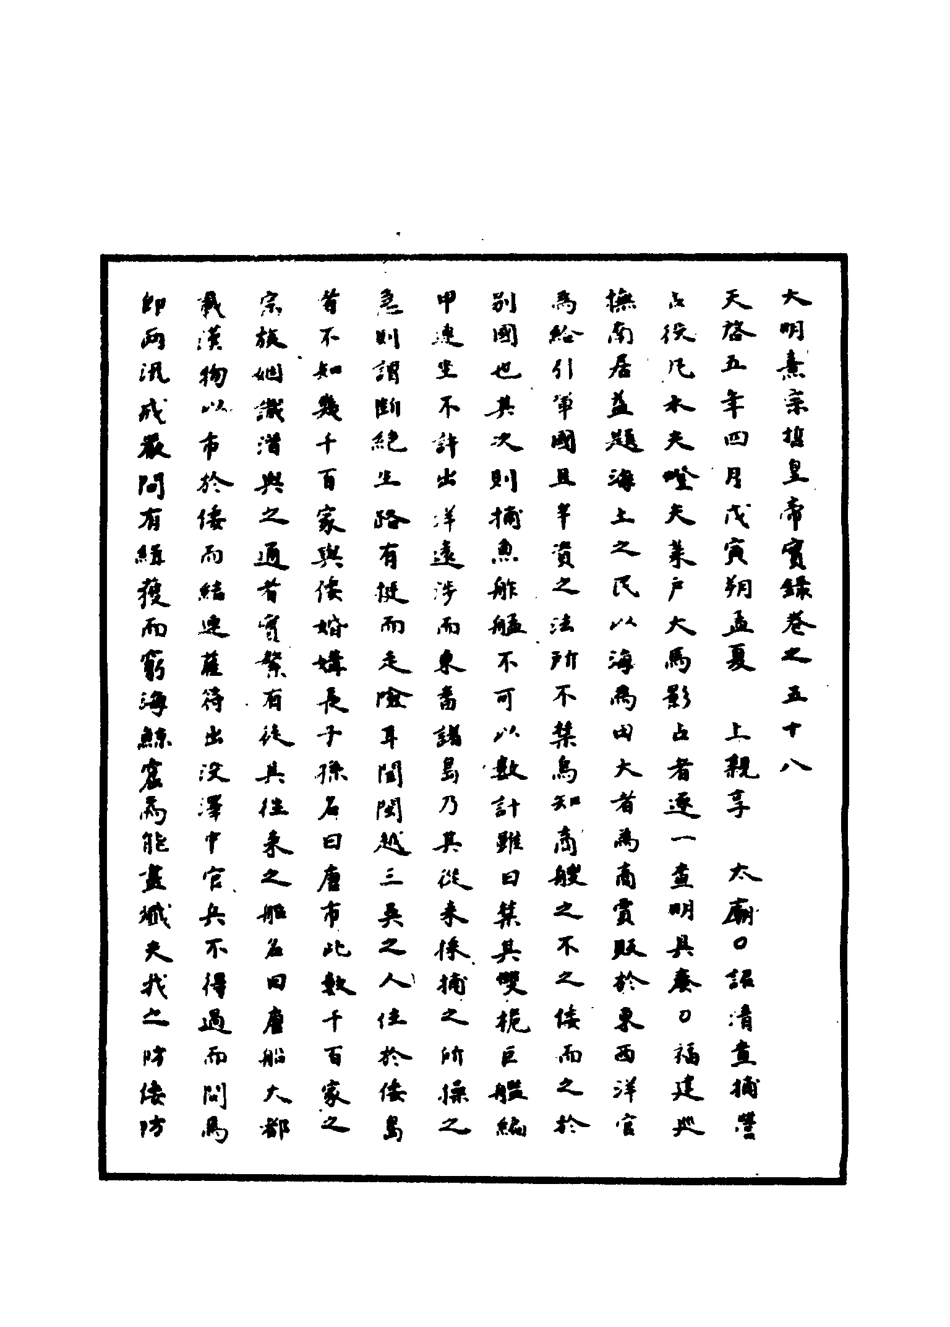 大明熹宗悊皇帝實錄卷之五十八
天啓五年四月戊寅朔孟夏　上親享　太廟○詔清查捕營
占役凡水夫燈夫菜戶大馬影占者逐一查明具奏○福建巡
撫南居益題海上之民以海爲田大者爲商賈販於東西洋官
爲給引軍國且半資之法所不禁烏知商艘之不之倭而之於
別國也其次則捕魚舴艋不可以數計雖曰禁其雙桅巨艦編
甲連坐不許出洋遠涉而東番諸島乃其從來採捕之所操之
急則謂斷絕生路有挺而走險耳閩閩越三吳之人住於倭島
者不知幾千百家與倭婚媾長子孫名曰唐市此數千百家之
宗族姻識潛與之通者實繁有徒其往來之船名曰唐船大都
載漢物以市於倭而結連萑符出沒澤中官兵不得過而問焉
即兩汛戒嚴間有緝獲而窮海鯨窟焉能盡殲夫我之防倭防